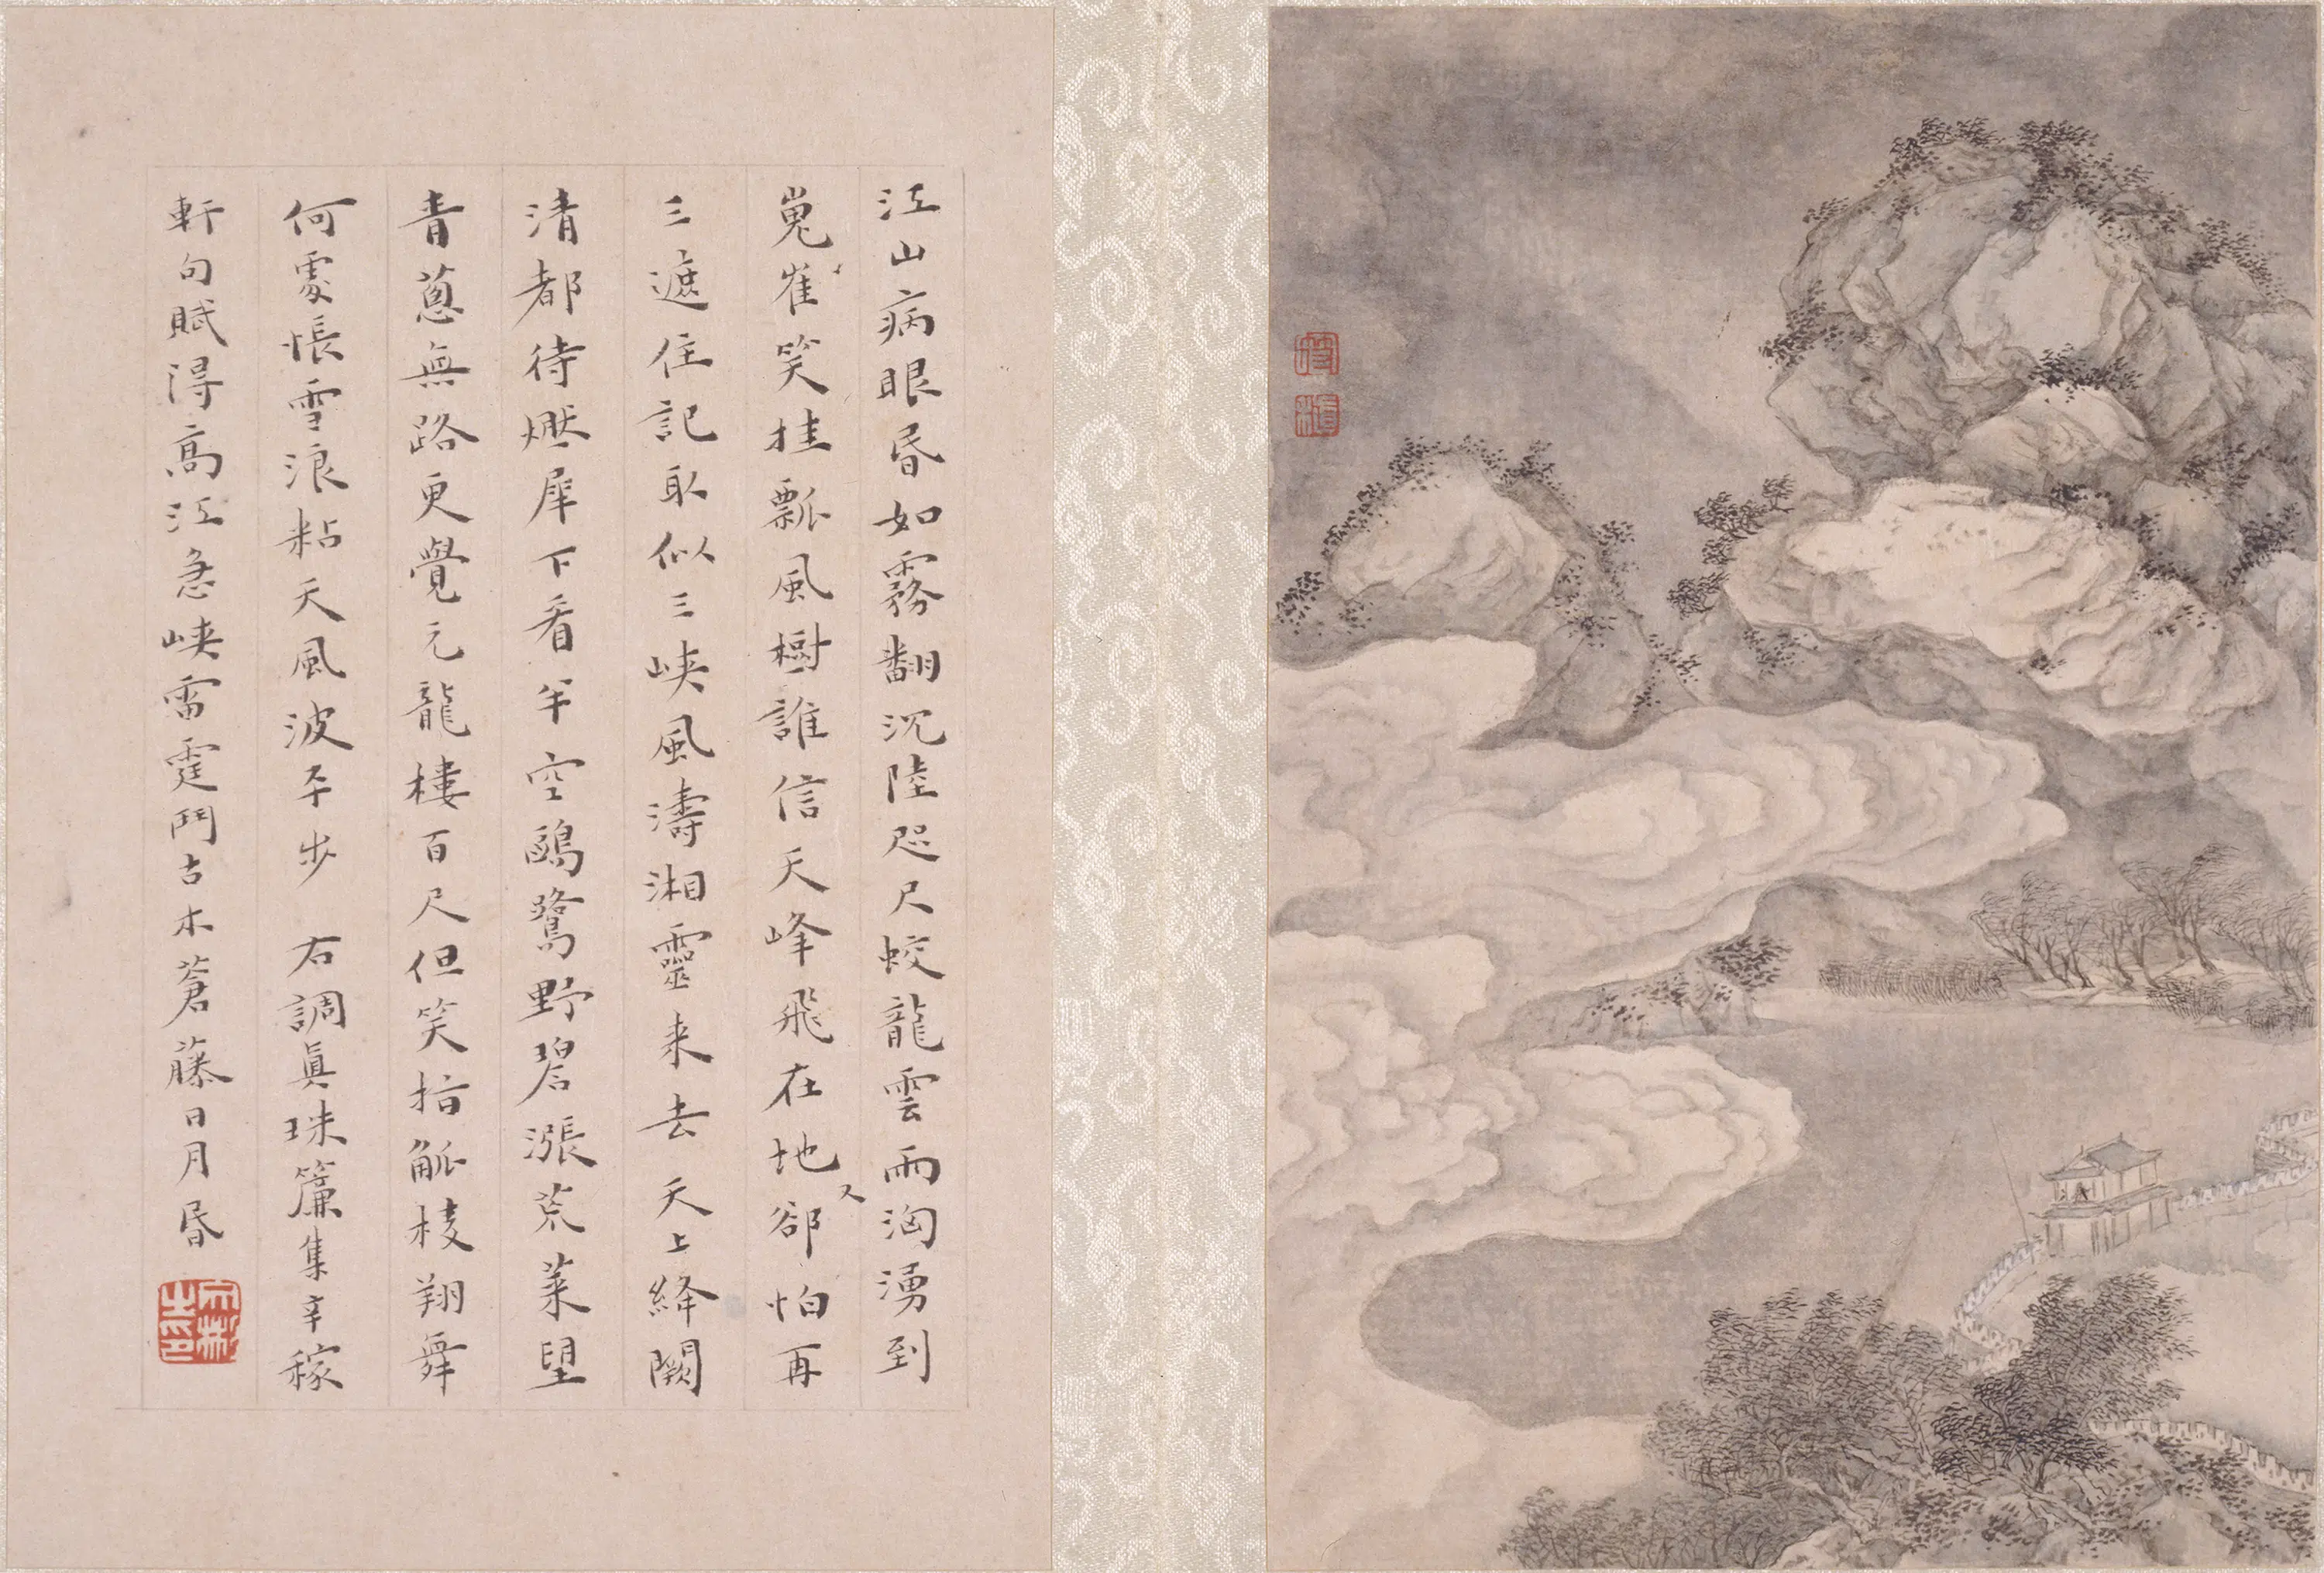 江山病眼昏如霧翻沉陸咫尺蛟龍雲雨洶湧到
嵬崔笑挂瓢風樹誰信天峰飛在地卻怕再
三遮住記取似三峽風濤湘靈来去天上絳闕
清都待燃犀下看半空鷗鷺野碧漲荒萊望
青蔥無路更覺元龍樓百尺但笑指觚棱翔舞
何處悵雪浪粘天風波平步 右調真珠簾集辛稼
軒句賦得高江急峽雷霆鬥古木蒼藤日月昏